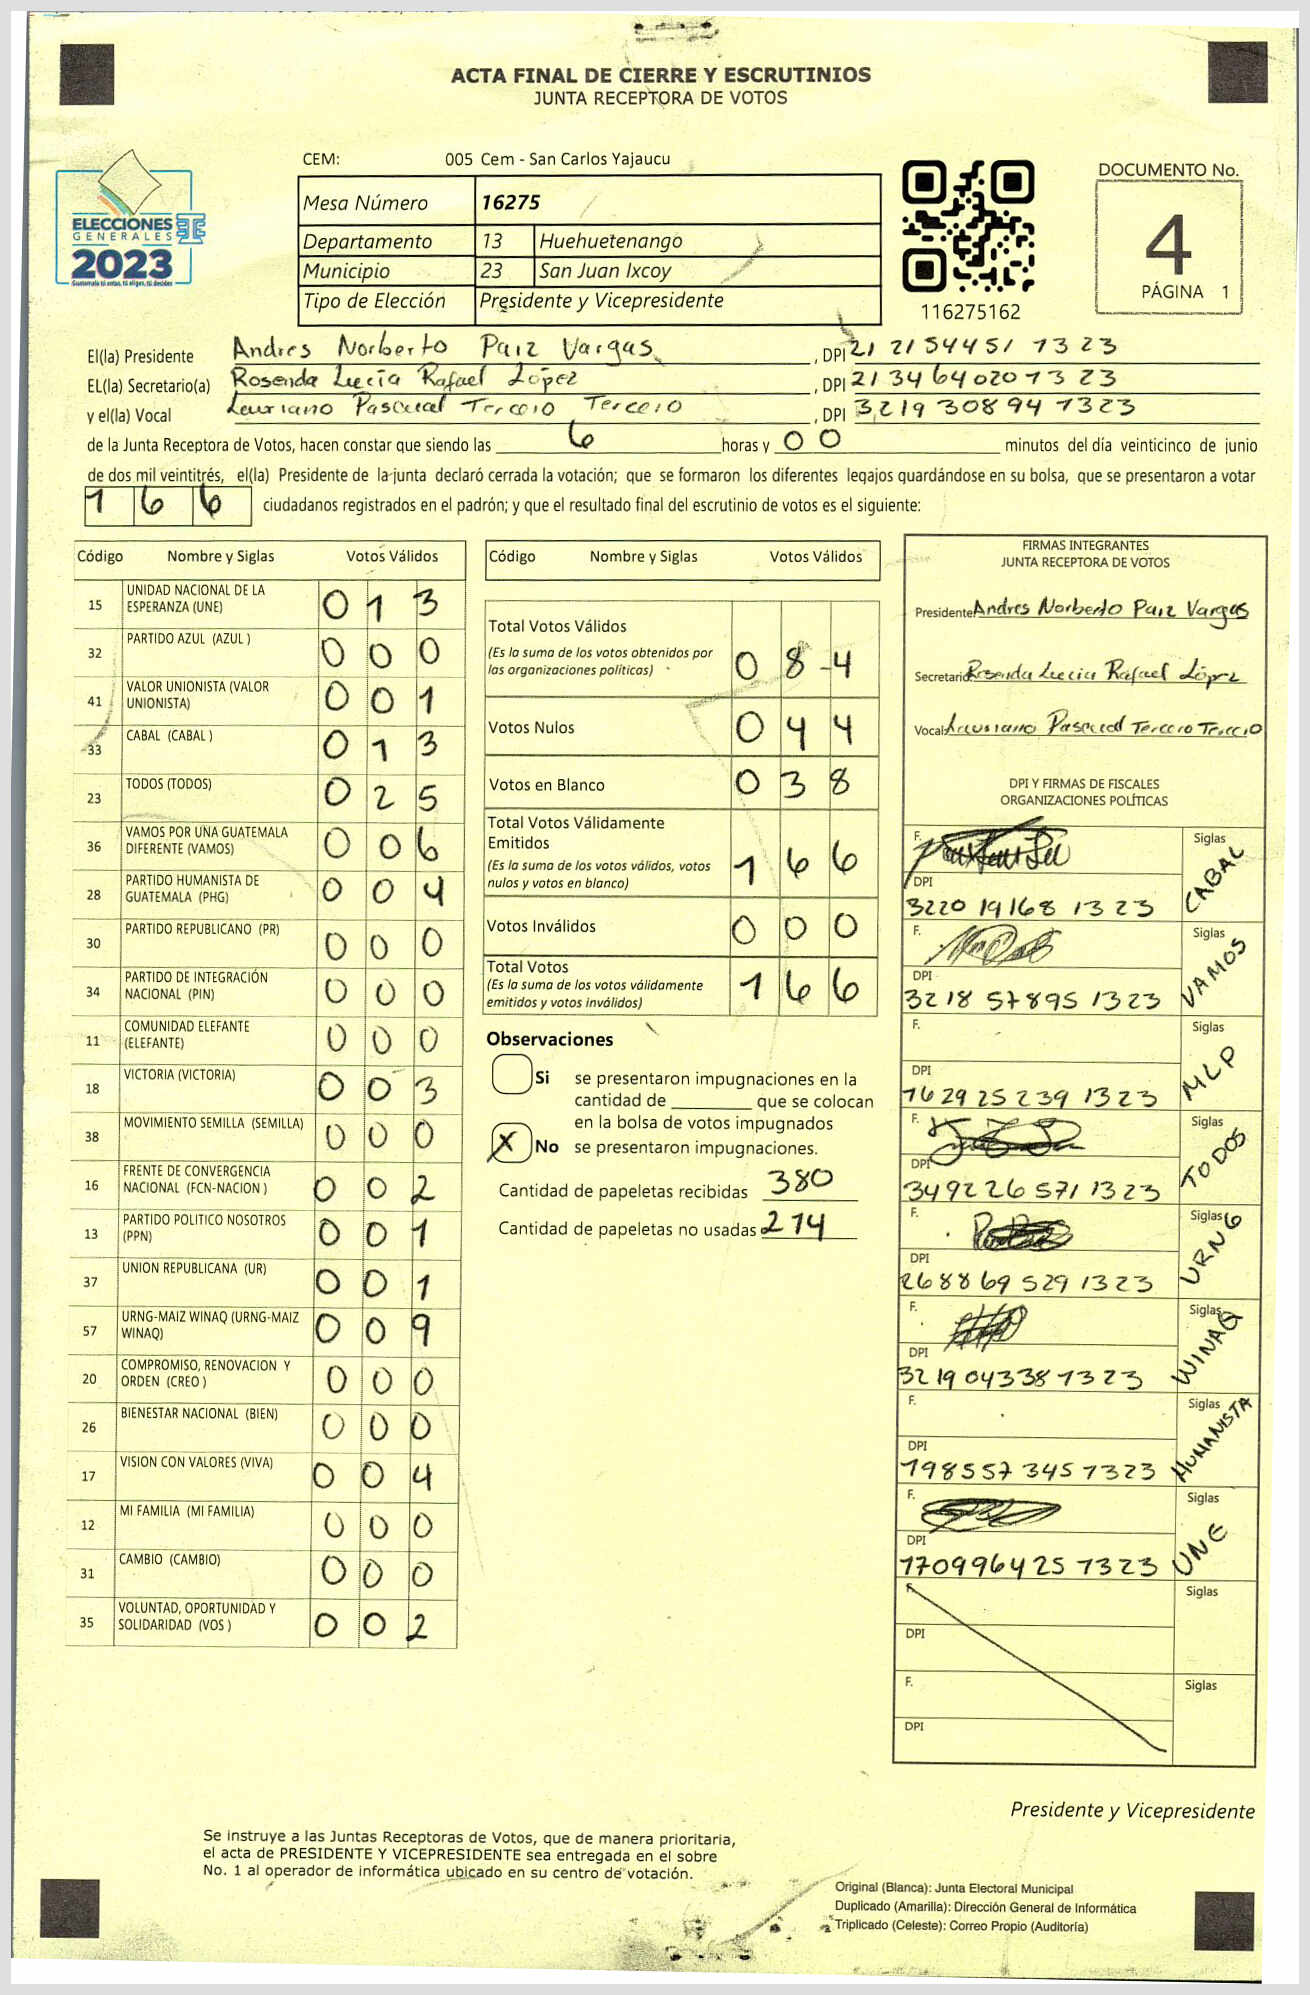 ACTA FINAL DE CIERRE Y ESCRUTINIOS
JUNTA RECEPTORA DE VOTOS
ELECCIONES
GENERALES
2023
Guatemala tú votas, tú eliges, tú decides
CEM: 005 Cem - San Carlos Yajaucu
Mesa Número 16275
Departamento 13 Huehuetenango
Municipio 23 San Juan Ixcoy
Tipo de Elección Presidente y Vicepresidente
116275162
DOCUMENTO No.
4
PÁGINA 1
El(la) Presidente Andres Norberto Paiz Vargas, DPI 21 2154451 1323
EL(la) Secretario(a) Rosenda Lucía Rafael López, DPI 21346402071323
y el(la) Vocal Lauriano Pascual Tercero Tercero, DPI 3219 30894 1323
de la Junta Receptora de Votos, hacen constar que siendo las 6 horas y 00 minutos del día veinticinco de junio
de dos mil veintitrés, el(la) Presidente de la junta declaró cerrada la votación; que se formaron los diferentes legajos guardándose en su bolsa, que se presentaron a votar
166 ciudadanos registrados en el padrón; y que el resultado final del escrutinio de votos es el siguiente:
Código Nombre y Siglas Votos Válidos
15 UNIDAD NACIONAL DE LA ESPERANZA (UNE) 013
32 PARTIDO AZUL (AZUL ) 000
41 VALOR UNIONISTA (VALOR UNIONISTA) 001
33 CABAL (CABAL ) 013
23 TODOS (TODOS) 025
36 VAMOS POR UNA GUATEMALA DIFERENTE (VAMOS) 006
28 PARTIDO HUMANISTA DE GUATEMALA (PHG) 004
30 PARTIDO REPUBLICANO (PR) 000
34 PARTIDO DE INTEGRACIÓN NACIONAL (PIN) 000
11 COMUNIDAD ELEFANTE (ELEFANTE) 000
18 VICTORIA (VICTORIA) 003
38 MOVIMIENTO SEMILLA (SEMILLA) 000
16 FRENTE DE CONVERGENCIA NACIONAL (FCN-NACION ) 002
13 PARTIDO POLITICO NOSOTROS (PPN) 001
37 UNION REPUBLICANA (UR) 001
57 URNG-MAIZ WINAQ (URNG-MAIZ WINAQ) 009
20 COMPROMISO, RENOVACION Y ORDEN (CREO ) 000
26 BIENESTAR NACIONAL (BIEN) 000
17 VISION CON VALORES (VIVA) 004
12 MI FAMILIA (MI FAMILIA) 000
31 CAMBIO (CAMBIO) 000
35 VOLUNTAD, OPORTUNIDAD Y SOLIDARIDAD (VOS ) 002
Código Nombre y Siglas Votos Válidos
Total Votos Válidos 084
(Es la suma de los votos obtenidos por
las organizaciones políticas)
Votos Nulos 044
Votos en Blanco 038
Total Votos Válidamente
Emitidos 166
(Es la suma de los votos válidos, votos
nulos y votos en blanco)
Votos Inválidos 000
Total Votos 166
(Es la suma de los votos válidamente
emitidos y votos inválidos)
Observaciones
Si se presentaron impugnaciones en la
cantidad de ________ que se colocan
en la bolsa de votos impugnados
X No se presentaron impugnaciones.
Cantidad de papeletas recibidas 380
Cantidad de papeletas no usadas 214
FIRMAS INTEGRANTES
JUNTA RECEPTORA DE VOTOS
Presidente Andres Norberto Paiz Vargas
Secretario Rosenda Lucia Rafael López
Vocal: Lauriano Pascual Tercero Tercero
DPI Y FIRMAS DE FISCALES
ORGANIZACIONES POLÍTICAS
F. Siglas CABAL
DPI 3220 19168 1323
F. Siglas VAMOS
DPI 3218 57895 1323
F. Siglas MLP
DPI 1629 25239 1323
F. Siglas TODOS
DPI 3492 26571 1323
F. Siglas URNG
DPI 2688 69529 1323
F. Siglas WINAQ
DPI 3219 04338 1323
F. Siglas HUMANISTA
DPI 1985 57345 1323
F. Siglas UNE
DPI 1709 96425 1323
F. Siglas
DPI
F. Siglas
DPI
Presidente y Vicepresidente
Se instruye a las Juntas Receptoras de Votos, que de manera prioritaria,
el acta de PRESIDENTE Y VICEPRESIDENTE sea entregada en el sobre
No. 1 al operador de informática ubicado en su centro de votación.
Original (Blanca): Junta Electoral Municipal
Duplicado (Amarilla): Dirección General de Informática
Triplicado (Celeste): Correo Propio (Auditoría)